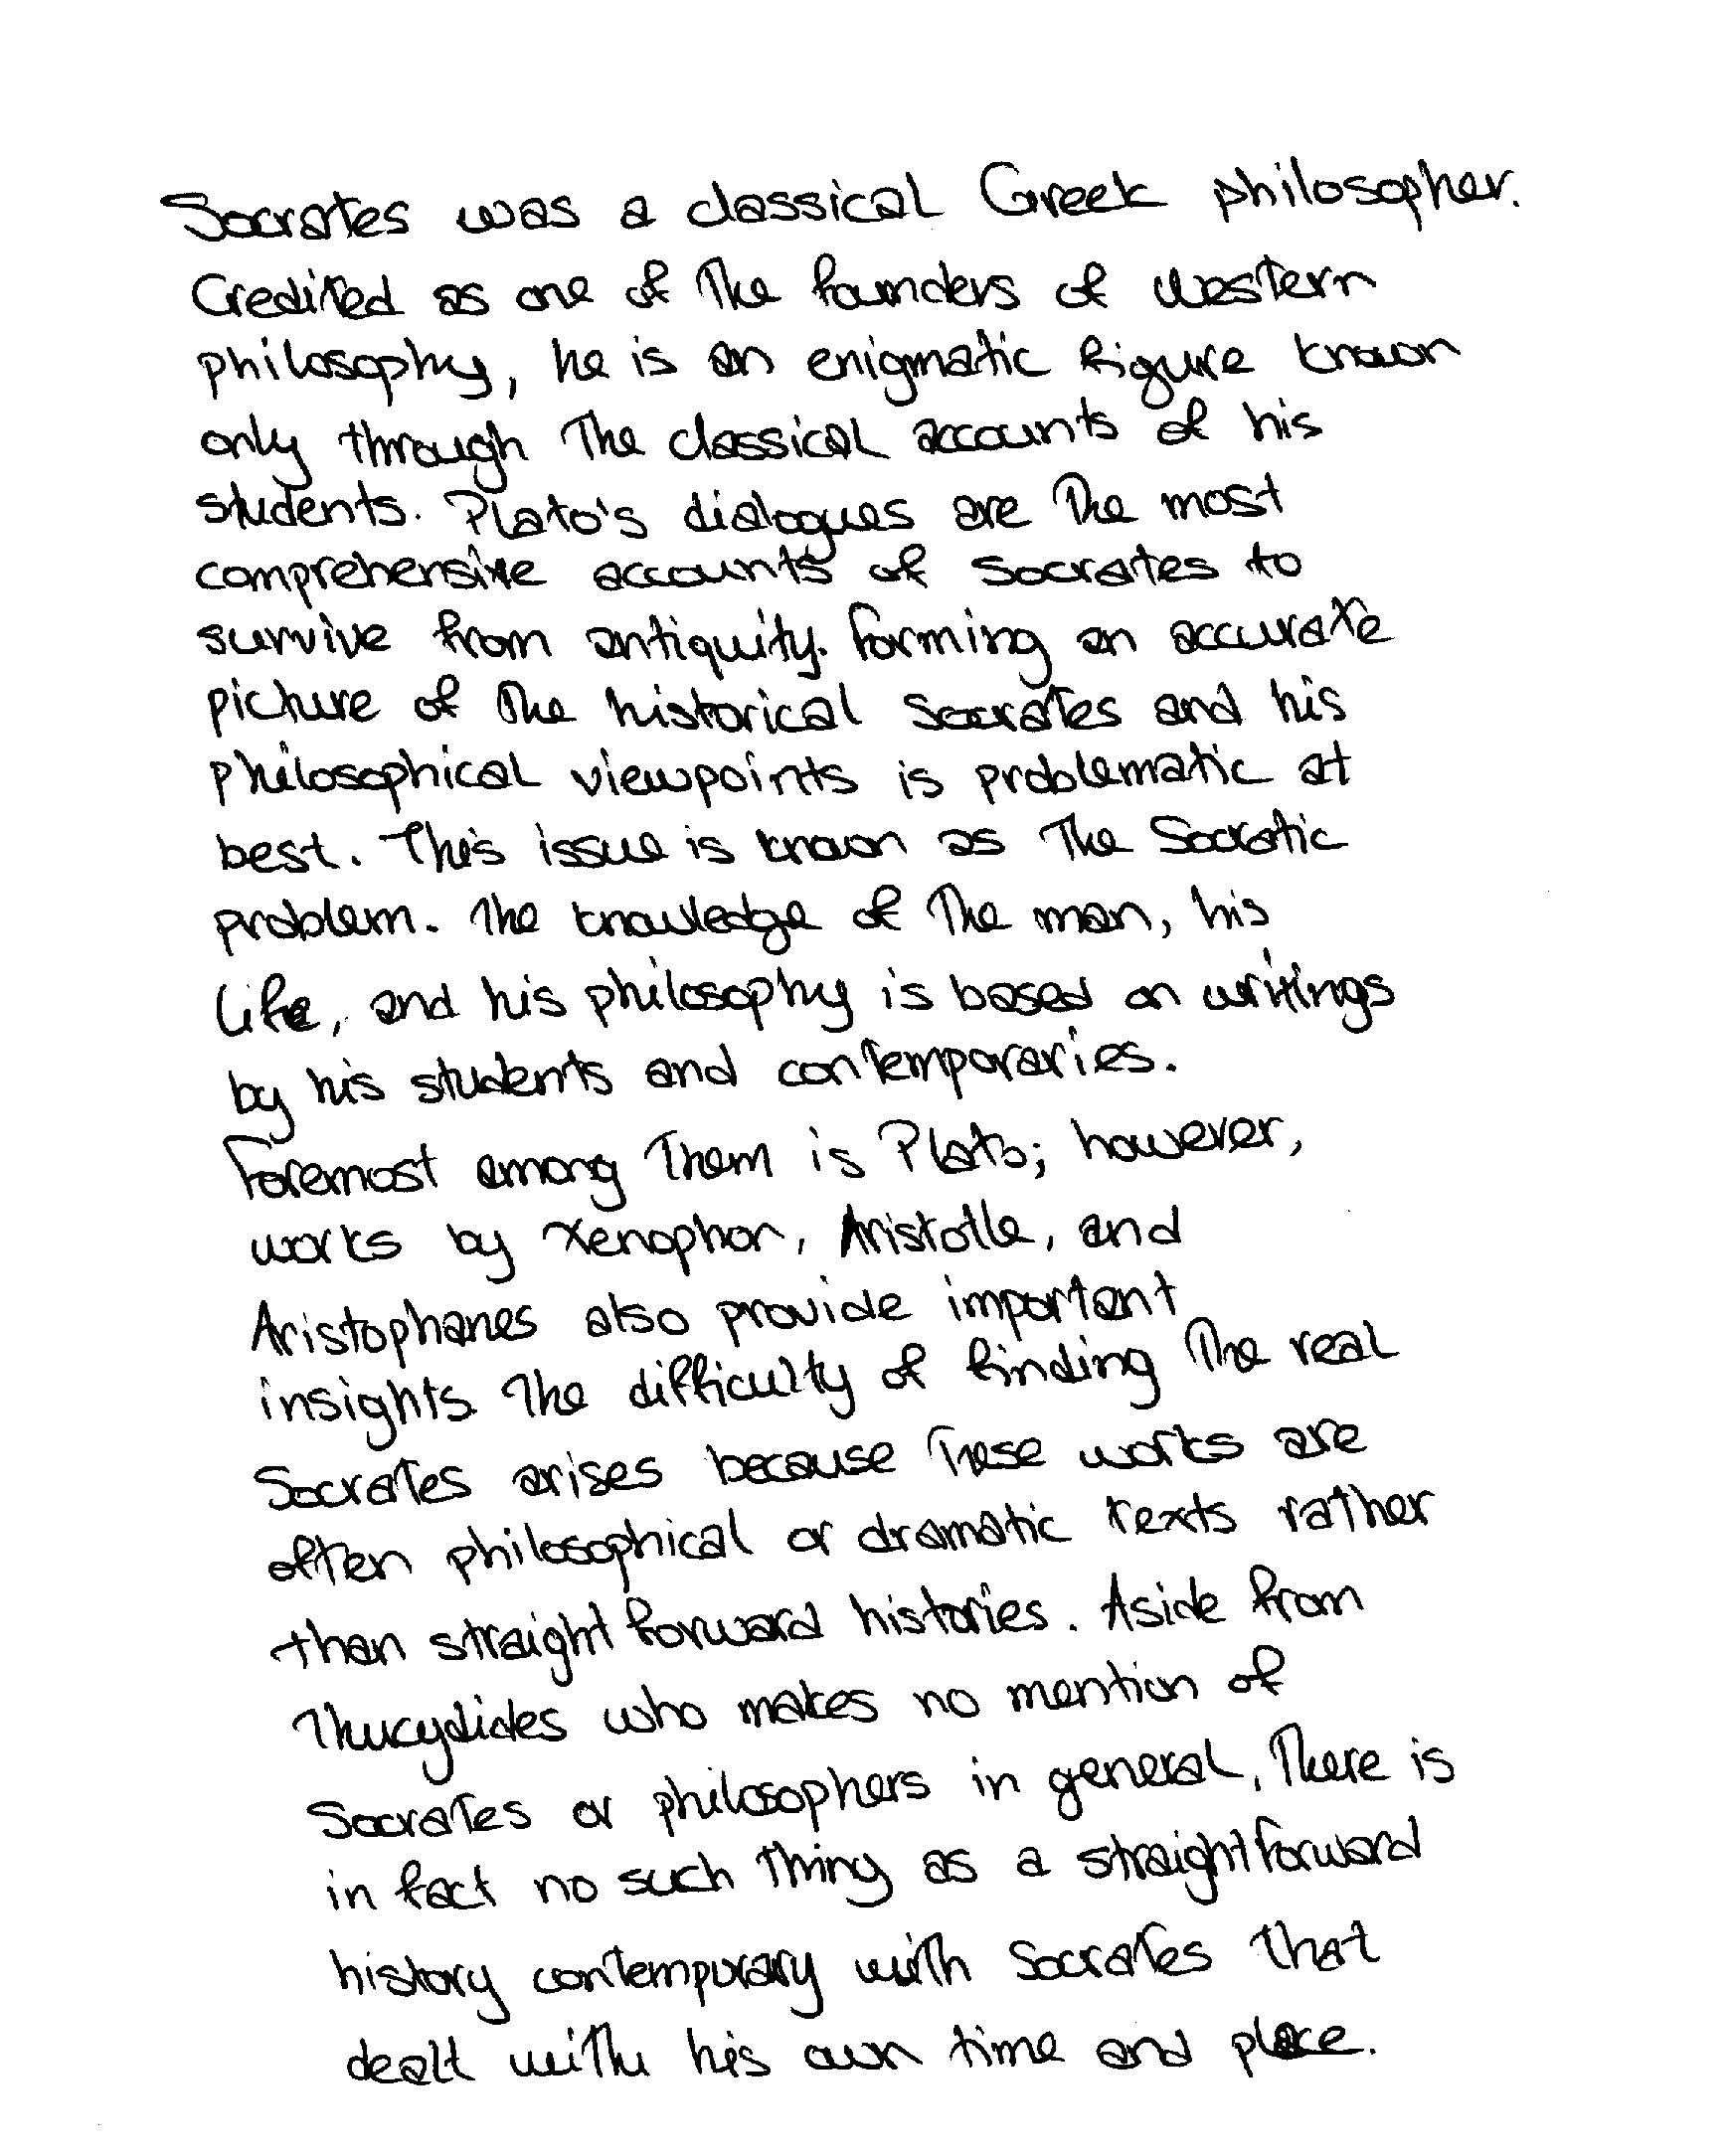 Socrates was a classical Greek philosopher.
Credited as one of the founders of western
philosophy, he is an enigmatic figure known
only through the classical accounts of his
students. Plato's dialogues are the most
comprehensive accounts of Socrates to
survive from antiquity. Forming an accurate
picture of the historical Socrates and his
philosophical viewpoints is problematic at
best. This issue is known as the Socratic
problem. The knowledge of the man, his
life, and his philosophy is based on writings
by his students and contemporaries.
Foremost among them is Plato; however,
works by Xenophon, Aristotle, and
Aristophanes also provide important
insights. The difficulty of finding the real
Socrates arises because these works are
often philosophical or dramatic texts rather
than straightforward histories. Aside from
Thucydides who makes no mention of
Socrates or philosophers in general, there is
in fact no such thing as a straightforward
history contemporary with Socrates that
dealt with his own time and place.